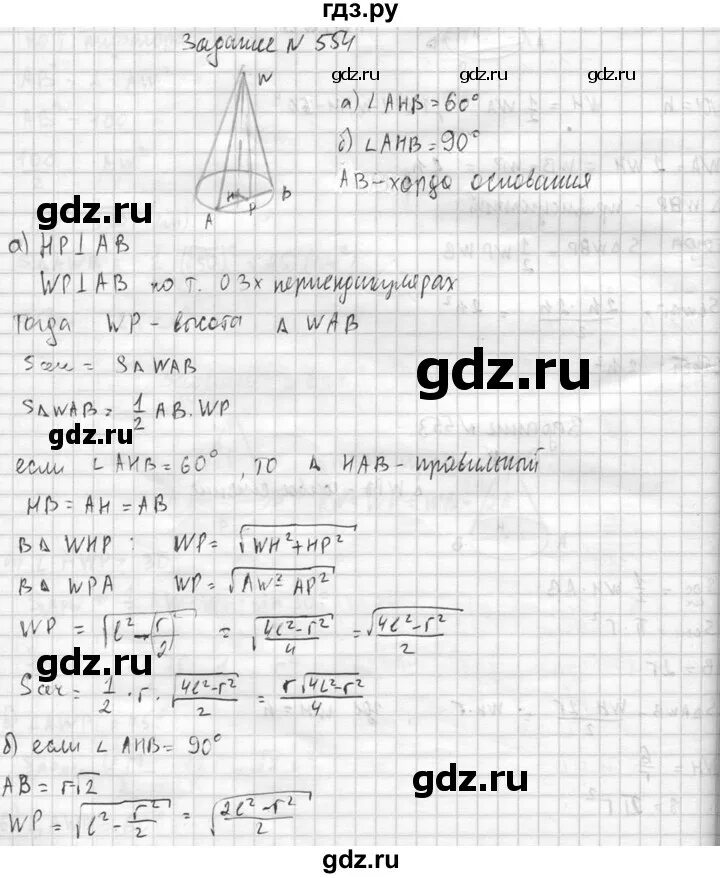 гдз.ру
Задание N 554
W
gdz.ru
gdz.ru
а) ∠AHB = 60°
б) ∠AHB = 90°
AB - хорда основания
H
B
A
P
gdz.ru
а) HP ⊥ AB
WP ⊥ AB по т. о 3х перпендикулярах
тогда WP - высота △ WAB
Sсеч = S△ WAB
gdz.ru
S△WAB = 1/2 AB · WP
gdz.ru
если ∠AHB = 60°, то △ HAB - правильный
HB = AH = AB
В△ WHP : WP = √(WH² + HP²)
gdz.ru
gdz.ru
В△ WPA WP = √(AW² AP²)
WP = √(l² - (r/2)²) = √((4l² - r²)/4) = √(4l² - r²)/2
gdz.ru
Sсеч = 1/2 · r · √(4l² - r²)/2 = r√(4l² - r²)/4
б) если ∠AHB = 90°
gdz.ru
AB = r√2
WP = √(l² - r²/2) = √((2l² - r²)/2)
gdz.ru
gdz.ru